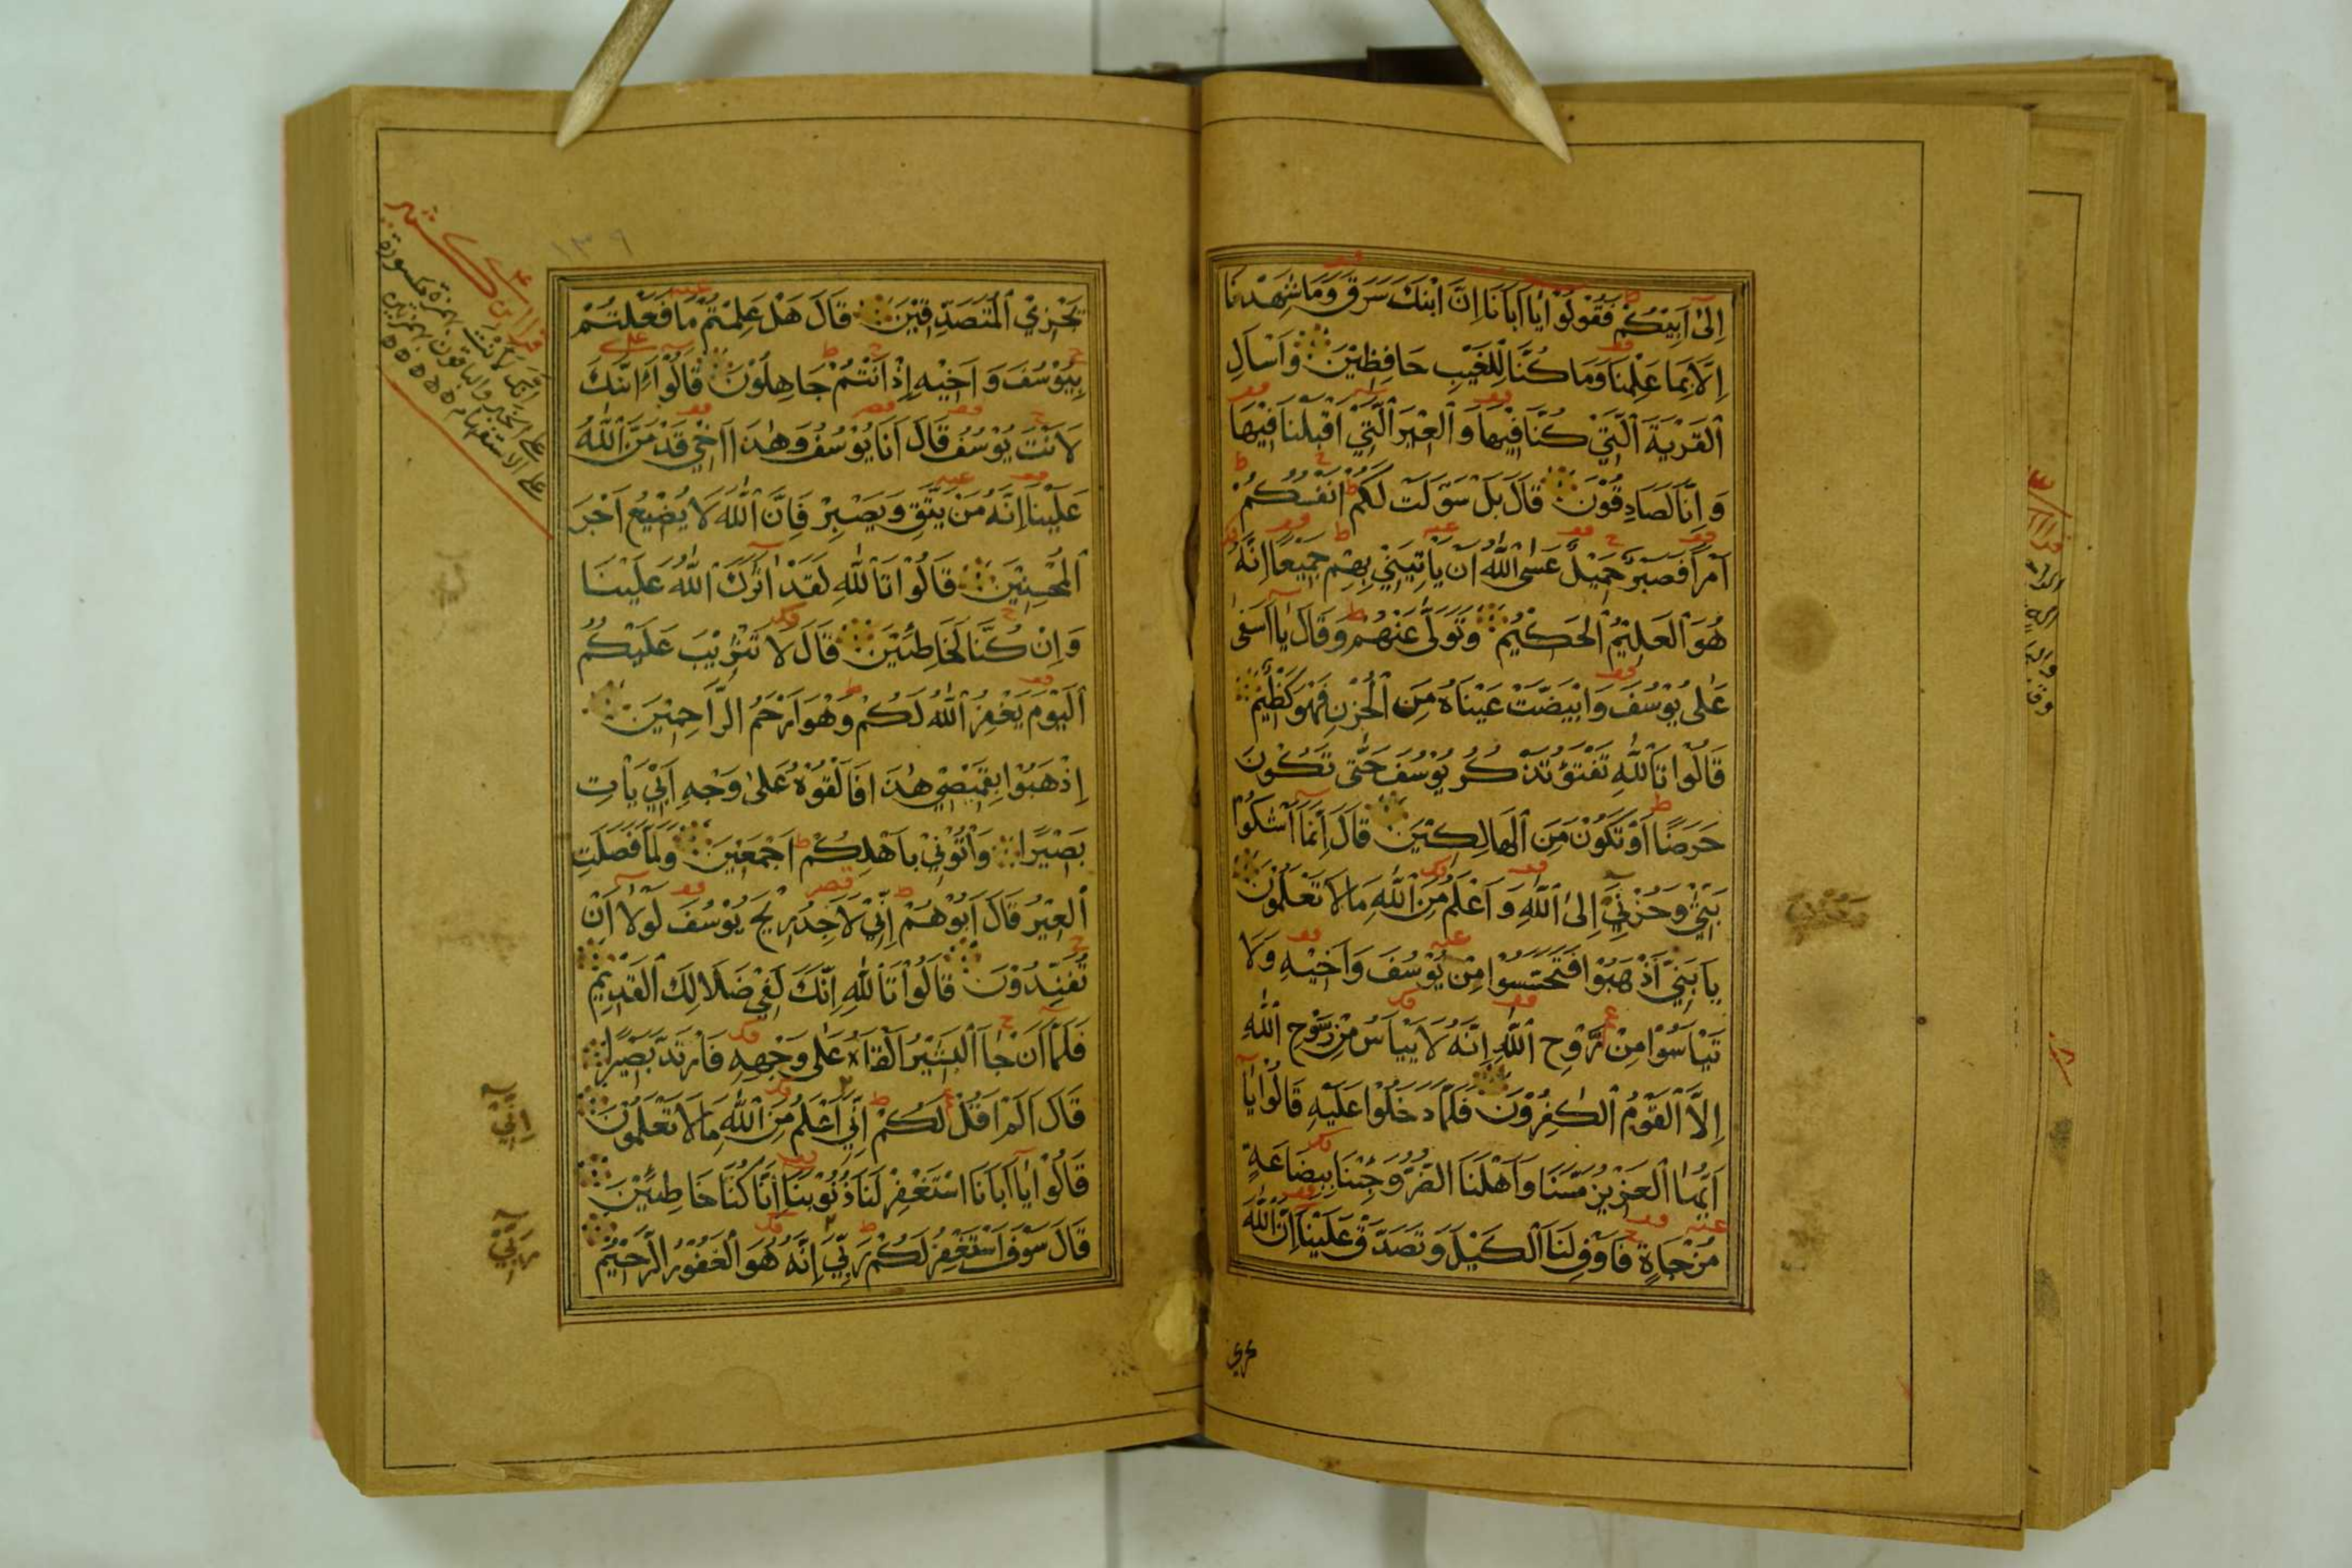 اِلىٰ اَبِيْكُمْ فَقُوْلُوْا يٰا اَبَانَا اِنَّ ابْنَكَ سَرَقَ وَمَا شَهِدْنَا
اِلَّا بِمَا عَلِمْنَا وَمَا كُنَّا لِلْغَيْبِ حَافِظِيْنَ وَاسْاَلِ
الْقَرْيَةَ الَّتِيْ كُنَّا فِيْهَا وَالْعِيْرَ الَّتِيْ اَقْبَلْنَا فِيْهَا
وَاِنَّا لَصَادِقُوْنَ قَالَ بَلْ سَوَّلَتْ لَكُمْ اَنْفُسُكُمْ
اَمْرًا فَصَبْرٌ جَمِيْلٌ عَسَى اللّٰهُ اَنْ يَاْتِيَنِيْ بِهِمْ جَمِيْعًا اِنَّهُ
هُوَ الْعَلِيْمُ الْحَكِيْمُ وَتَوَلّٰى عَنْهُمْ وَقَالَ يٰا اَسَفٰى
عَلٰى يُوْسُفَ وَابْيَضَّتْ عَيْنَاهُ مِنَ الْحُزْنِ فَهُوَ كَظِيْمٌ
قَالُوْا تَاللّٰهِ تَفْتَؤُ تَذْكُرُ يُوْسُفَ حَتّٰى تَكُوْنَ
حَرَضًا اَوْ تَكُوْنَ مِنَ الْهَالِكِيْنَ قَالَ اِنَّمَا اَشْكُوْا
بَثِّيْ وَحُزْنِيْ اِلَى اللّٰهِ وَاَعْلَمُ مِنَ اللّٰهِ مَا لَا تَعْلَمُوْنَ
يَا بَنِيَّ اذْهَبُوْا فَتَحَسَّسُوْا مِنْ يُوْسُفَ وَاَخِيْهِ وَلَا
تَيْاَسُوْا مِنْ رَوْحِ اللّٰهِ اِنَّهُ لَا يَيْاَسُ مِنْ رَوْحِ اللّٰهِ
اِلَّا الْقَوْمُ الْكٰفِرُوْنَ فَلَمَّا دَخَلُوْا عَلَيْهِ قَالُوْا يٰا
اَيُّهَا الْعَزِيْزُ مَسَّنَا وَاَهْلَنَا الضُّرُّ وَجِئْنَا بِبِضَاعَةٍ
مُزْجَاةٍ فَاَوْفِ لَنَا الْكَيْلَ وَتَصَدَّقْ عَلَيْنَا اِنَّ اللّٰهَ
يجزي
١٣٩
يَجْزِي الْمُتَصَدِّقِيْنَ قَالَ هَلْ عَلِمْتُمْ مَا فَعَلْتُمْ
بِيُوْسُفَ وَاَخِيْهِ اِذْ اَنْتُمْ جَاهِلُوْنَ قَالُوْا ءَاِنَّكَ
لَاَنْتَ يُوْسُفُ قَالَ اَنَا يُوْسُفُ وَهٰذَا اَخِيْ قَدْ مَنَّ اللّٰهُ
عَلَيْنَا اِنَّهُ مَنْ يَتَّقِ وَيَصْبِرْ فَاِنَّ اللّٰهَ لَا يُضِيْعُ اَجْرَ
الْمُحْسِنِيْنَ قَالُوْا تَاللّٰهِ لَقَدْ اٰثَرَكَ اللّٰهُ عَلَيْنَا
وَاِنْ كُنَّا لَخَاطِئِيْنَ قَالَ لَا تَثْرِيْبَ عَلَيْكُمُ
الْيَوْمَ يَغْفِرُ اللّٰهُ لَكُمْ وَهُوَ اَرْحَمُ الرَّاحِمِيْنَ
اِذْهَبُوْا بِقَمِيْصِيْ هٰذَا فَاَلْقُوْهُ عَلٰى وَجْهِ اَبِيْ يَاْتِ
بَصِيْرًا وَاْتُوْنِيْ بِاَهْلِكُمْ اَجْمَعِيْنَ وَلَمَّا فَصَلَتِ
الْعِيْرُ قَالَ اَبُوْهُمْ اِنِّيْ لَاَجِدُ رِيْحَ يُوْسُفَ لَوْلَا اَنْ
تُفَنِّدُوْنَ قَالُوْا تَاللّٰهِ اِنَّكَ لَفِيْ ضَلَالِكَ الْقَدِيْمِ
فَلَمَّا اَنْ جَاۤءَ الْبَشِيْرُ اَلْقَاهُ عَلٰى وَجْهِهِ فَارْتَدَّ بَصِيْرًا
قَالَ اَلَمْ اَقُلْ لَكُمْ اِنِّيْ اَعْلَمُ مِنَ اللّٰهِ مَا لَا تَعْلَمُوْنَ
قَالُوْا يٰا اَبَانَا اسْتَغْفِرْ لَنَا ذُنُوْبَنَا اِنَّا كُنَّا خَاطِئِيْنَ
قَالَ سَوْفَ اَسْتَغْفِرُ لَكُمْ رَبِّيْ اِنَّهُ هُوَ الْغَفُوْرُ الرَّحِيْمُ
قرا ابن كثير
اِنَّكَ لَاَنْتَ بهمزة مكسورة
على الخبر والباقون بهمزتين
على الاستفهام
اِنِّيْ
رَبِّيْ